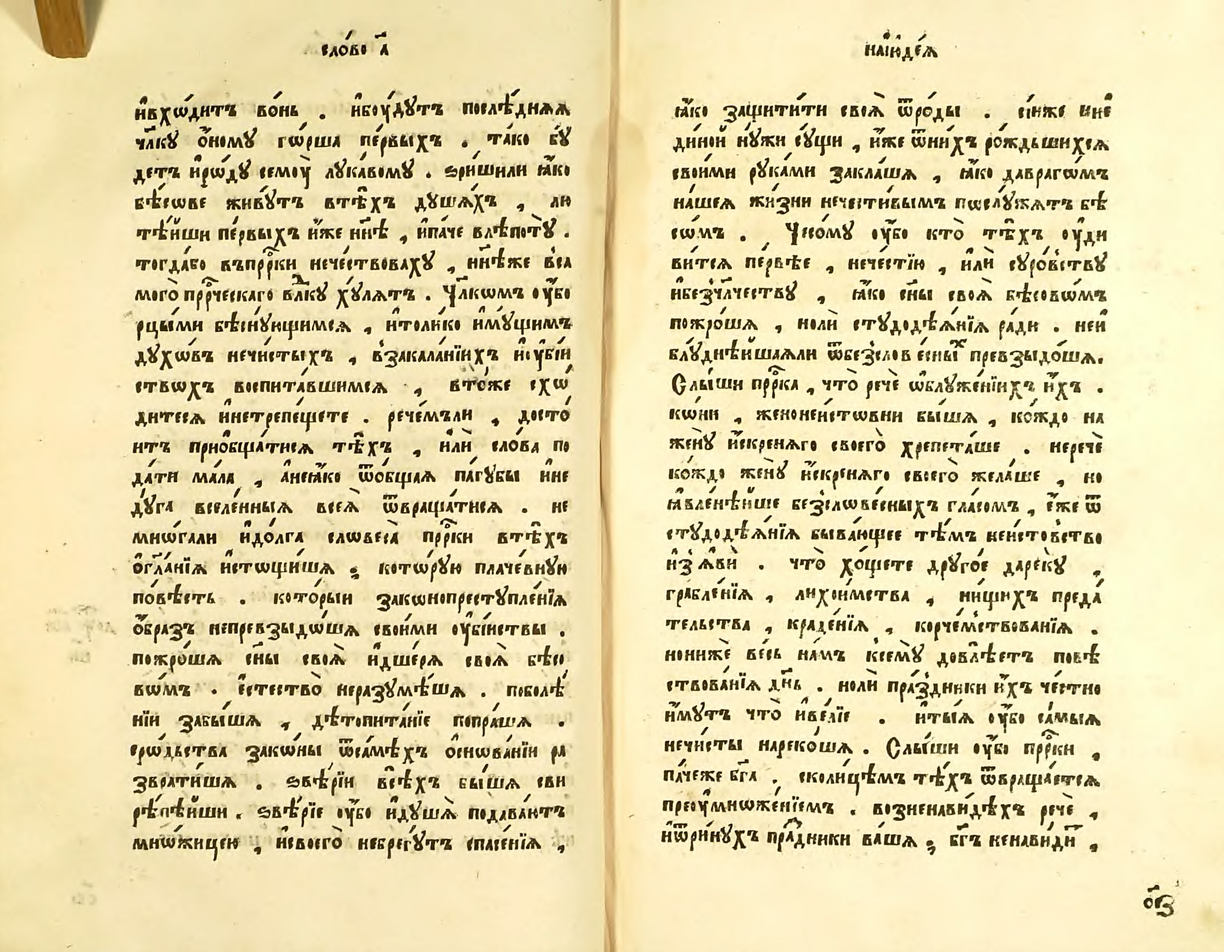 сло́во а҃
и҆вхѡ́дитъ во́нь . и҆боу́дутъ послѣ́дняѧ
чл҃ку о҆́ному гѡ́рша пе́рвыхъ . та́ко бу́
детъ и҆рѡ́ду семоу̀ лука́вому . ѕри́шили ꙗ҆́ко
бѣ́сѡве живу́тъ втѣ́хъ душѧ́хъ , лю
тѣ́йши пе́рвыхъ и҆́же нн҃ѣ , и҆па́че влѣ́поту .
тогда́бо въпрр҃ки нече́ствоваху , нн҃ѣже все
мого̀ прр҃ческаго вл҃ку ху́лятъ . Чл҃кѡмъ оу҆́бо
рцы́ми бѣсну́ющимсѧ , и҆толи́ко и҆му́щимъ
ду́хѡвъ нечи́стыхъ , взакала́нїихъ и҆оу҆бі́и
ствѡхъ воспита́вшимсѧ , вто́же схѡ́
дитесѧ и҆нетрепе́щете . рече́мъли , досто́
итъ прио҆бща́тисѧ тѣ́хъ , и҆лѝ сло́ва по
да́ти ма́ла , а҆неꙗ҆́ко ѿо́бщаѧ па́губы и҆не
ду́га вселе́нныѧ всеѧ̀ ѿвраща́тисѧ . не
мнѡ́гали и҆до́лга словеса̀ прр҃ки втѣ́хъ
о҆гл҃а́нїѧ и҆стощи́шѧ ; кото́рую плаче́вную
по́вѣсть . кото́рыи закѡнопреступле́нїѧ
о҆́бразъ непревзыдо́шѧ свои́ми оу҆бі́йствы .
пожро́шѧ сн҃ы своѧ̀ и҆дще́рѧ своѧ̀ бѣсо
вѡмъ . є҆стество̀ неразумѣ́шѧ . поболѣ́
нїи забы́шѧ , дѣтопита́нїе попра́шѧ .
срѡ́дьства зако́ны ѿсамѣ́хъ о҆снова́нїи ра
звратишѧ . ѕвѣ́рїи всѣ́хъ бы́шѧ сви
рѣпѣ́йши . ѕвѣ́рїе оу҆́бо и҆ду́шѧ подава́ютъ
мнѡ́жицею , и҆своего̀ небрегу́тъ спасе́нїѧ ,
наїюде́ѧ
ꙗ҆́ко защити́ти своѧ̀ ѿро́ды . сі́иже ние
ди́ной ну́жи су́щи , и҆́же ѿни́хъ рожде́шихсѧ
свои́ми рука́ми закла́шѧ , ꙗ҆́ко давраго́мъ
на́шеѧ жи́зни нечести́вымъ послу́жѧтъ бѣ́
сѡмъ . Чесому̀ оу҆́бо кто̀ тѣ́хъ оу҆ди
ви́тсѧ пе́рвѣе , нече́стїю , и҆лѝ суро́вству
и҆безчл҃честву , ꙗ҆́ко сн҃ы своѧ̀ бѣсово́мъ
пожро́шѧ , но́ли студодѣѧ́нїѧ ра́ди . ней
блу́днѣйшаꙗли ѿбезслове́сныхъ превзыдо́шѧ.
Слы́ши прр҃ка , что̀ речѐ ѡ҆блуже́нїихъ и҆́хъ .
ко́ни , женоне́истовни бы́шѧ , ко́ждо на
жену̀ и҆́скренѧго своего̀ хрепета́ше . неречѐ
ко́ждо жену̀ и҆́скренѧго своего̀ жела́ше , но
ꙗ҆вле́ннѣйше безслове́сныхъ гла́сомъ , є҆́же ѿ
студодѣѧ́нїѧ быва́ющее тѣ́мъ неи́стовство
и҆з̾ѧвѝ . что̀ хо́щете друго́е дареку̀ ,
грабле́нїѧ , лихои́мства , ни́щихъ преда́
тельства , краде́нїѧ , корче́мствованїѧ .
нонижѐ весь на́мъ ксему̀ довлѣ́етъ повѣ́
ствованїѧ дн҃ь . но́ли пра́здники и҆́хъ че́стно
и҆́мутъ что̀ и҆ве́лїе . и҆ты́ѧ оу҆́бо са́мыѧ
нечи́сты нареко́шѧ . Слы́ши оу҆́бо прр҃ки ,
па́чеже бг҃а . сколи́цѣмъ тѣ́хъ ѿвраща́етсѧ
преоу҆множе́нїемъ . возненави́дѣхъ речѐ ,
и҆ѿри́нухъ пра́здники ва́шѧ ; бг҃ъ ненави́ди ,
о҃з